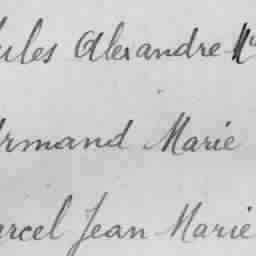 ules Alexandre
rmand Marie
arcel Jean Marie